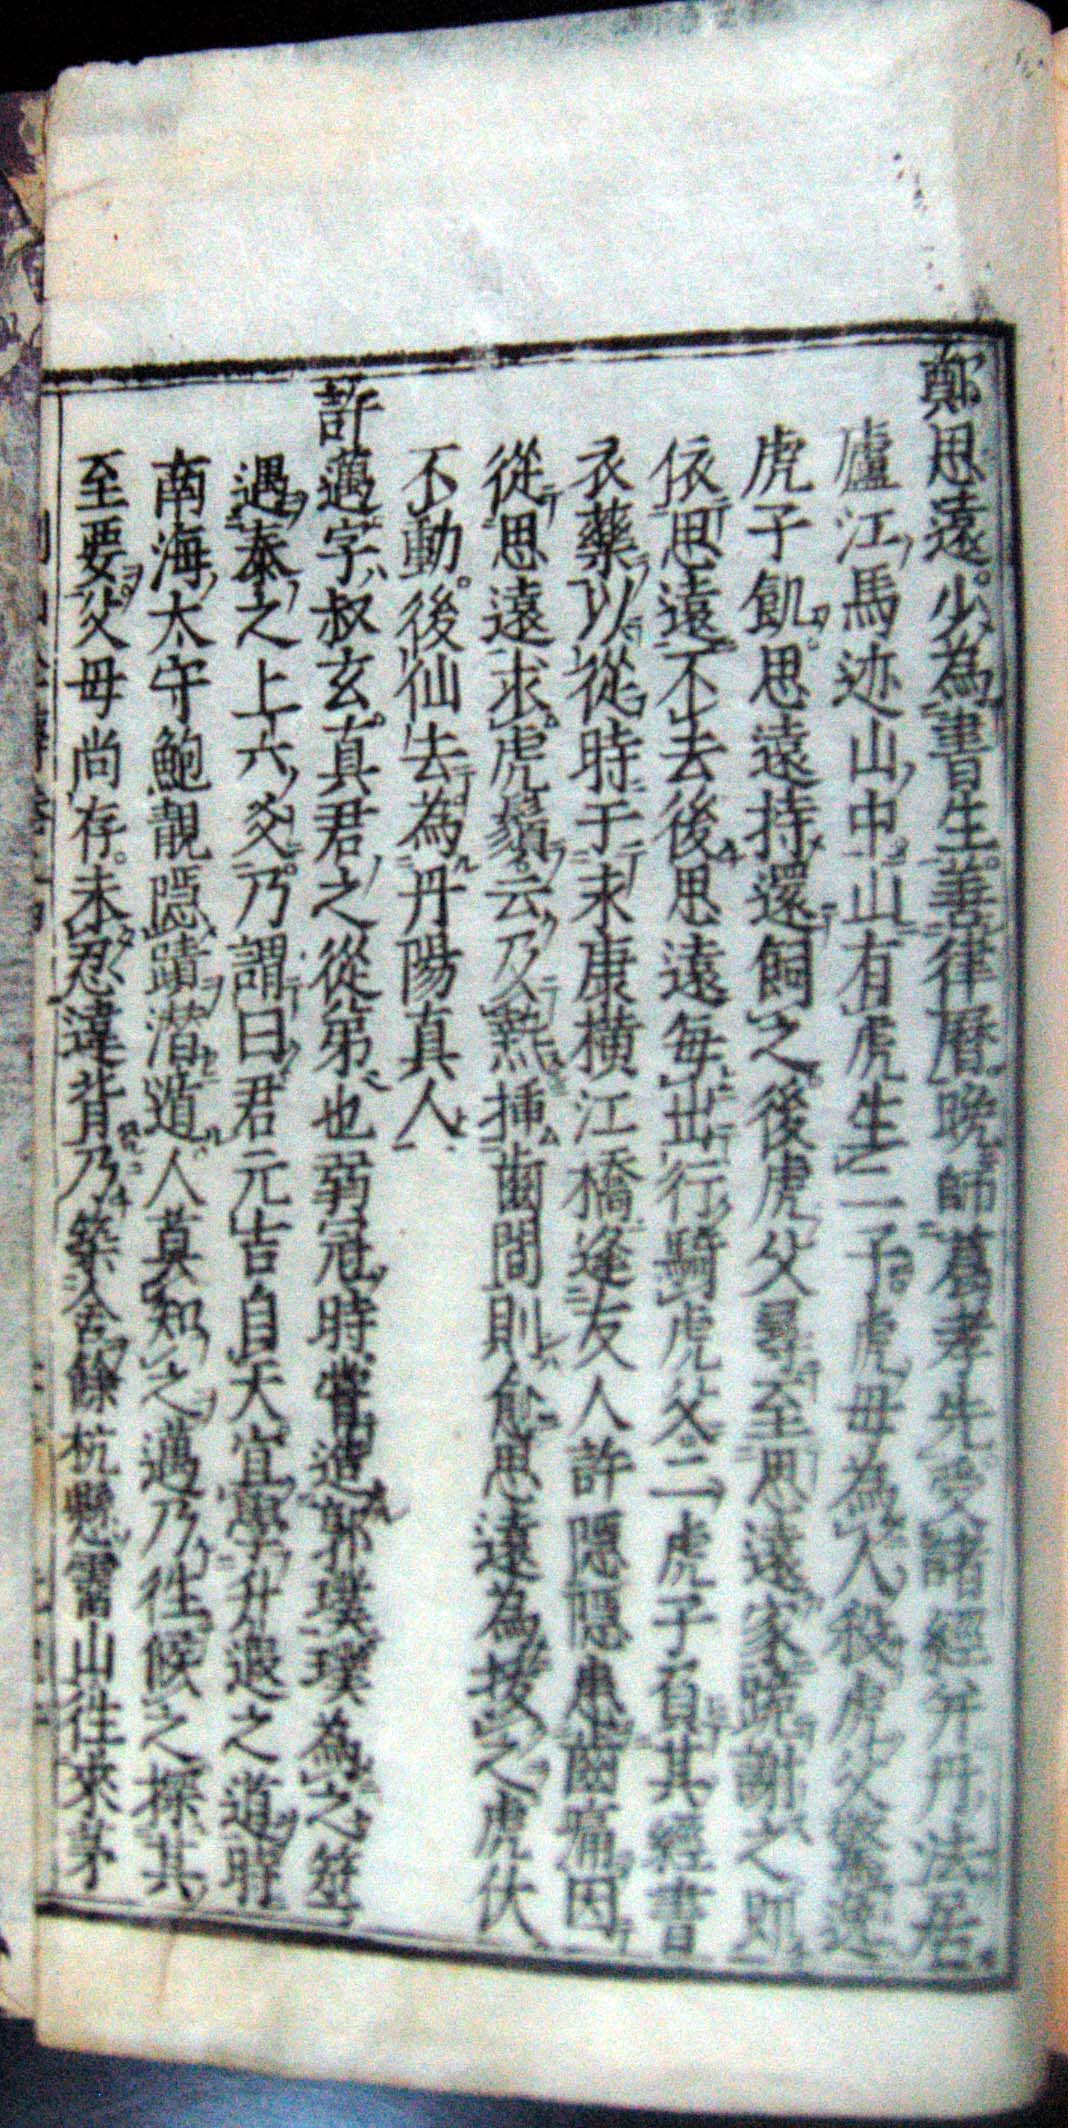 鄭思遠少為書生善律曆晩師葛孝先受諸經并丹法居
廬江馬迹山中山有虎生二子虎母為人殺虎父驚逸
虎子飢思遠持還飼之後虎父尋至思遠家跪謝之則
依思遠不去後思遠每出行騎虎父二虎子負其經書
衣藥以從時于永康横江橋逢友人許隱隱患齒痛因
從思遠求虎鬚云及熱挿齒間則愈思遠為拔之虎伏
不動後仙去為丹陽真人
許邁字叔玄真君之從弟也弱冠時嘗造郭璞璞為之筮
遇泰之上六爻乃謂曰君元吉自天宜學升遐之道時
南海太守鮑靚隱蹟潜遁人莫知之邁乃徃候之探其
至要父母尚存未忍違背乃築舍餘杭懸霤山往來茅